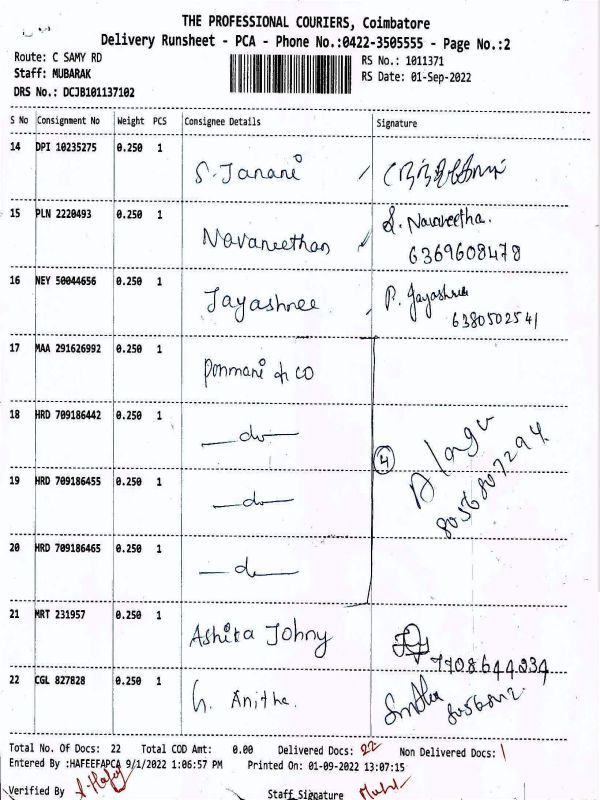 THE PROFESSIONAL COURIERS, Coimbatore
Delivery Runsheet - PCA - Phone No.:0422-3505555 - Page No.:2
Route: C SAMY RD
RS No.: 1011371
Staff: MUBARAK
RS Date: 01-Sep-2022
DRS No.: DCJB101137102
S No Consignment No Weight PCS Consignee Details Signature
14 DPI 10235275 0.250 1 S. Janani
15 PLN 2220493 0.250 1 Navaneethan S. Navaneetha.
6369608478
16 NEY 50044656 0.250 1 Jayashree P. Jayashree
6380502541
17 MAA 291626992 0.250 1 Ponmani & CO
18 HRD 709186442 0.250 1 —do—
4 Alagu
8056807294
19 HRD 709186455 0.250 1 —do—
20 HRD 709186465 0.250 1 —do—
21 MRT 231957 0.250 1 Ashita Johny
7708644234
22 CGL 827828 0.250 1 G. Anitha.
Total No. Of Docs: 22 Total COD Amt: 0.00 Delivered Docs: 22 Non Delivered Docs: 1
Entered By :HAFEEFAPCA 9/1/2022 1:06:57 PM Printed On: 01-09-2022 13:07:15
Verified By Staff Signature